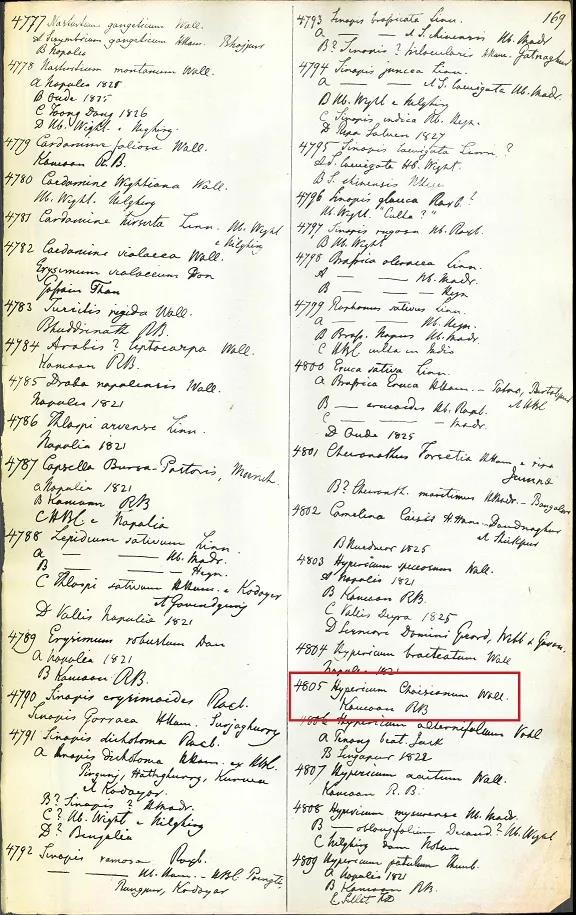 169
4777 Nasturtium gangeticum Wall.
A Sisymbrium gangeticum Ham. Bhojpur
B Napalia
4778 Nasturtium montanum Wall.
A Napalia 1821
B Oude 1825
C Toong Dong 1826
D Hb. Wight
4779 Cardamine foliosa Wall.
Kamaon R.B.
4780 Cardamine Wightiana Wall.
Hb. Wight. Nilghiry
4781 Cardamine hirsuta Linn. Hb. Wight
e Nilghiry
4782 Cardamine violacea Wall.
Erysimum violaceum Don
Gossain Than
4783 Turritis rigida Wall.
Bhuddrinath RB.
4784 Arabis ? leptocarpa Wall.
Kamaon RB.
4785 Draba napalensis Wall.
Napalia 1821
4786 Thlaspi arvense Linn.
Napalia 1821
4787 Capsella Bursa-Pastoris, Moench.
A Napalia 1821
B Kamaon RB
C HBC e Napalia
4788 Lepidium sativum Linn.
A — — Hb. Madr.
B — — Heyn.
C Thlaspi sativum Hkam. e Kodayar
D Vallis Napalia 1821
4789 Erysimum robustum Don
A Napalia 1821
B Kamaon RB.
4790 Sinapis erysimoides Roxb.
Sinapis Gorraea Hkam.
4791 Sinapis dichotoma Roxb.
A Sinapis dichotoma Hkam. ex HBC
Kodayar
B? Sinapis ? Hmadr.
C? Hb. Wight e Nilghiry
D? Bengalia
4792 Sinapis ramosa Roxb.
— — Hb. Ham. — HBC
Rungpur, Kodayar
4793 Sinapis Linn.
A — — A S. chinensis Hb. Madr
B? Sinapis ? Hkam.
4794 Sinapis juncea Linn.
A — — A S. laevigata Hb. Madr.
B Hb. Wight e Nilghiry
C Sinapis indica Hb. Heyn.
D Ripa Saluen 1827
4795 Sinapis laevigata Linn ?
A S. laevigata Hb. Wight.
B S. chinensis
4796 Sinapis glauca Roxb ?
Hb. Wight. "Calla ?"
4797 Sinapis rugosa Hb. Roxb.
B Hb. Wight
4798 Brassica oleracea Linn.
A — — Hb. Madr.
B — — Heyn
4799 Raphanus sativus Linn.
A — — Hb. Heyn.
B Brass. Napus Hb. Madr.
C HBC culta in India
4800 Eruca sativa Linn.
A Brassica Eruca Hkam. — Patna,
A HBC
B — erucoides Hb. Roxb.
C — — Madr.
D Oude 1825
4801 Cheiranthus Forsetia Hkam e ripa
Jumna
B? Cheiranth. maritimus Hmadr. — Bangalor
4802 Camelina Caisis H.Ham —
B Hurdwar 1825
4803 Hypericum speciosum Wall.
A Napalia 1821
B Kamaon RB.
C Vallis Deyra 1825
D Sirmore Domini Gerard, Webb & Govan.
4804 Hypericum bracteatum Wall
Napalia 1821
4805 Hypericum Choisianum Wall.
Kamaon RB
4806 Hypericum alternifolium Vahl
A Penang Jack
B Singapur 1822
4807 Hypericum Wall.
Kamaon R.B.
4808 Hypericum mysurense Hb. Madr.
B — oblongifolium Hb. Wight
C Nilghiry
4809 Hypericum patulum Thunb.
A Napalia 1821
B Kamaon RB.
C Sillet